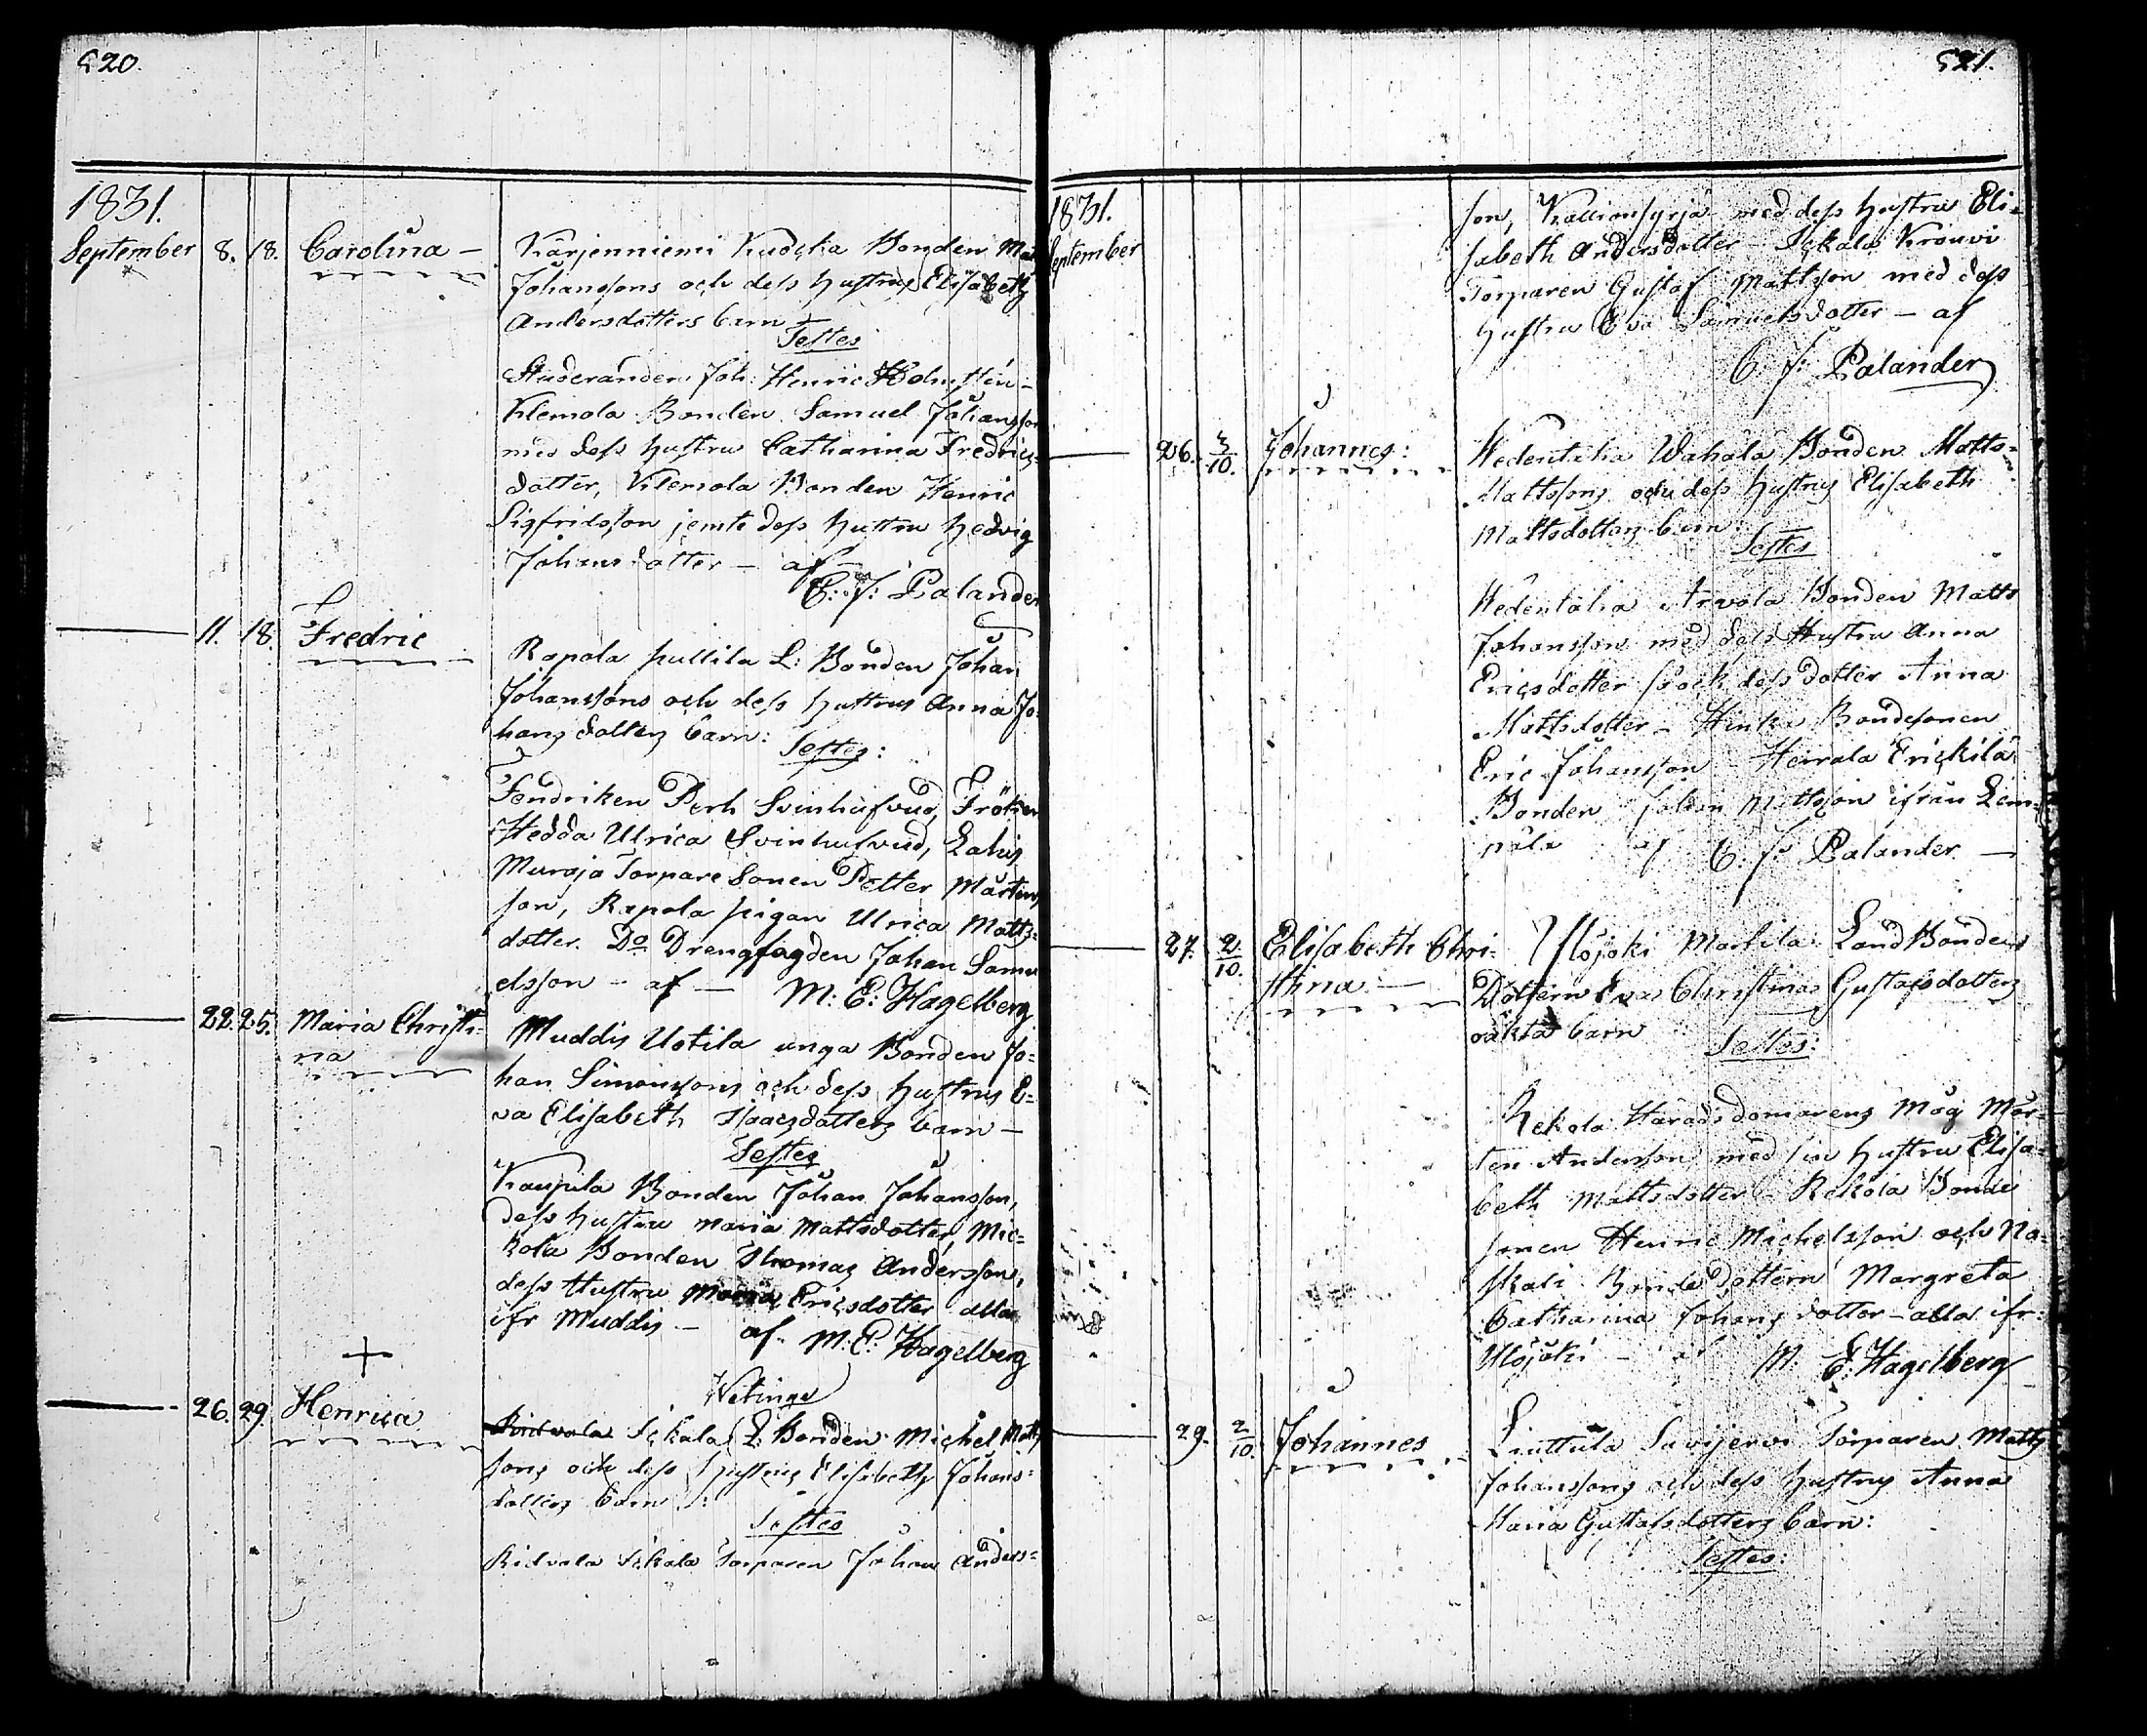 520.
1831.
September 8. 18. Carolina — Kärjenniemi Kudska Bonden Mat
Johanssons och dess hustrus Elisabeth
Andersdotters barn —
Testes
Studeranden Joh: Henric Holmstén —
Klemola Bonden Samuel Johansson
med dess hustru Catharina Fredrics-
dotter, Klemola Bonden Henric
Sigfridsson jemte dess hustru Hedvig
Johansdotter — af
C: J: Palander
11. 18. Fredric Rapola pullila L: Bonden Johan
Johanssons och dess hustrus Anna Jo-
hans dotters barn:
Testes:
Fendriken Perh Svinhufvud, Fröken
Hedda Ulrica Svinhufvud, Lahis
Muroja Torpare Sonen Petter Mårtens
son, Rapola pigan Ulrica Matts-
dotter. Do Drengfogden Johan Samu
elsson — af — M: E: Hagelberg
22. 25. Maria Christi-
na
Muddis Uotila unga Bonden Jo-
han Simonssons och dess hustrus E-
va Elisabeth Isaacsdotters barn —
Testes
Kaupila Bonden Johan Johansson,
dess hustru Maria Mattsdotter, Mic-
kola Bonden Thomas Andersson,
dess Hustru Maria Ericsdotter alla
ifr Muddis — af M: E: Hagelberg
+
26. 29. Henrica
Wetinge
Ridvala Sekala L: Bonden Michel Matts
sons och dess Hustrus Elisabeth Johans-
dotters barn:
Testes
Ridvala Sekala Torparen Johan Anders-
521.
1831.
September
son, Kallionsyrjä med dess hustru Eli-
sabeth Andersdotter — Sekala Krouvi
Torparen Gustaf Mattsson med dess
hustru Eva Samuelsdotter — af
C. J: Palander
26. 3/10. Johannes: Hedentaka Wahala Bonden Matts
Mattssons och dess Hustrus Elisabeth
Mattsdotters barn:
Testes
Hedentaka Arvola Bonden Matts
Johansson med dess Hustru Anna
Ericsdotter sock dess dotter Anna
Mattsdotter — Henka Bondesonen
Eric Johansson — Herrala Erickilä
Bonden Johan Mattsson ifrån Lem-
pälä af C. J: Palander —
27. 2/10. Elisabeth Chri-
stina —
Ylöjoki Marttila Land Bonden
Dottern Eva Christinas Gustafsdotters
oäkta barn
Testes:
Rekola Häradsdomarens Måg Mår-
ten Andersson med sin hustru Elisa-
beth Mattsdotter — Rekola Bonde
sonen Henric Michelsson och Na-
skali Bonde dottern Margreta
Catharina Johans dotter — alla ifr:
Ylöjoki — af M: E: Hagelberg
29. 2/10. Johannes Liuttula Savijervi Torparen Matts
Johanssons och dess hustrus Anna
Maria Gustafsdotters barn:
Testes: